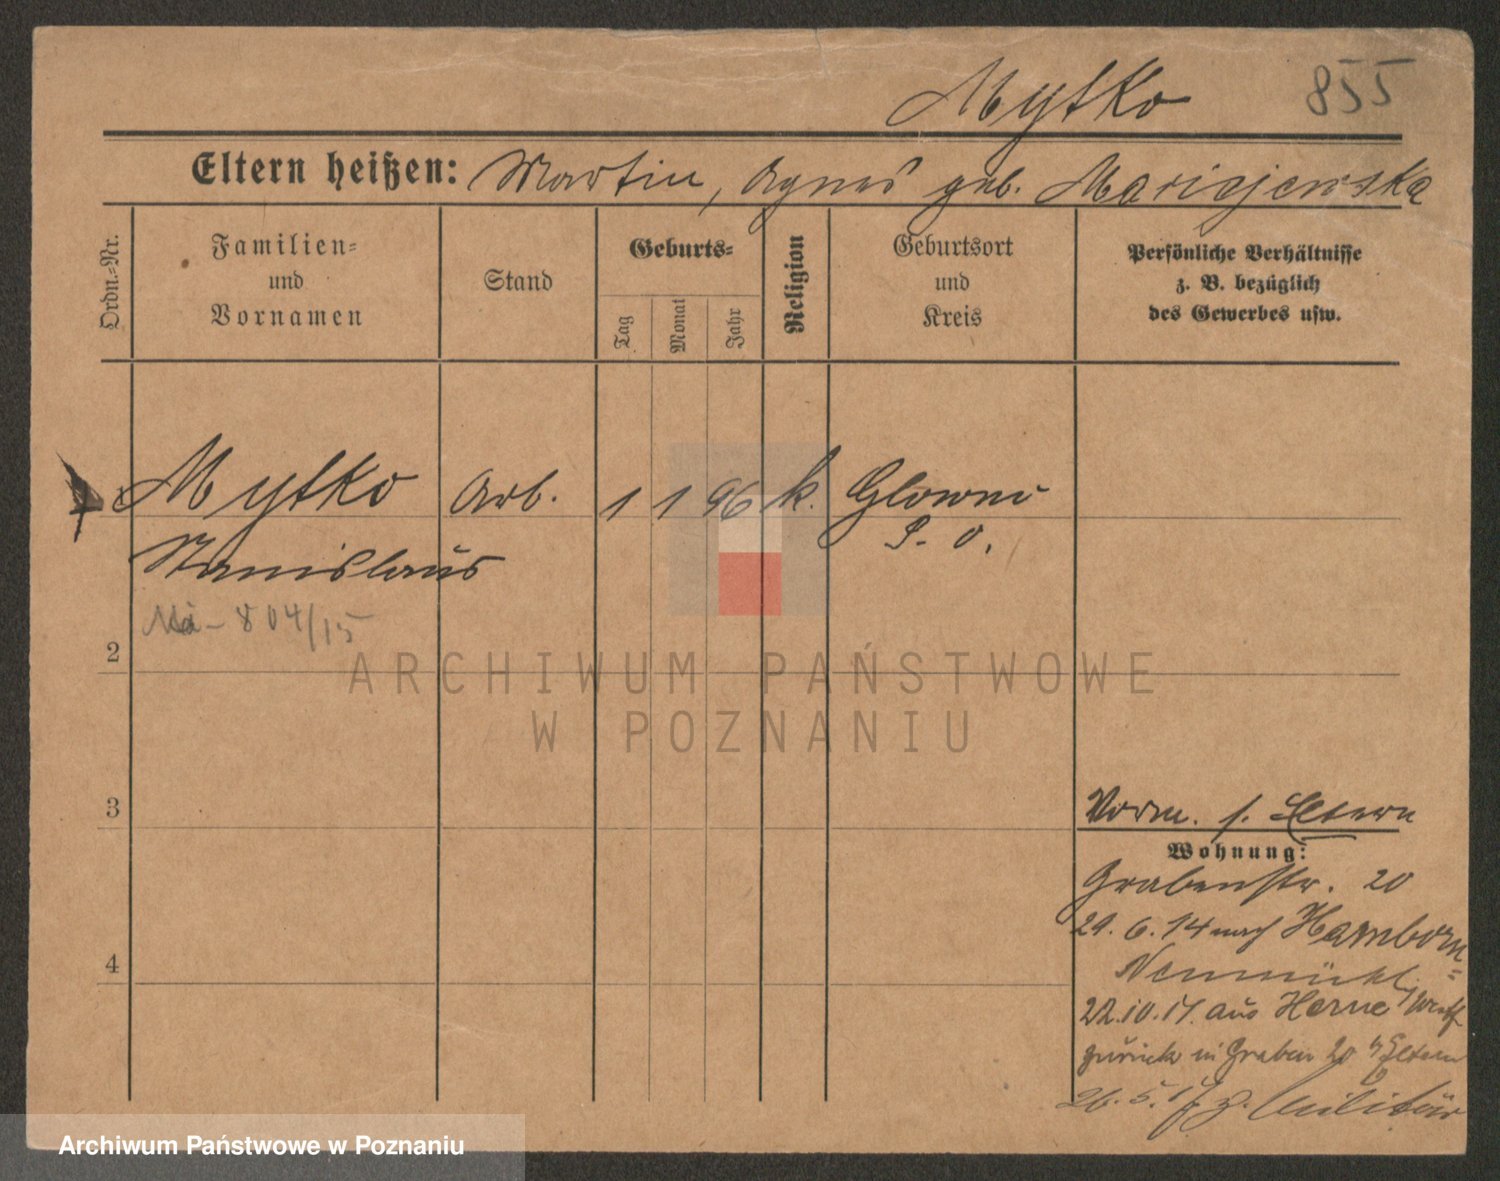 Mytko 855
Eltern heißen: Martin, Agnes geb. Maciejewska
Ordn.-Nr.
Familien-
und
Vornamen
Stand
Geburts-
Tag
Monat
Jahr
Religion
Geburtsort
und
Kreis
Persönliche Verhältnisse
z. B. bezüglich
des Gewerbes usw.
1 Mytko Arb. 1 1 96 k. Glowno
Stanislaus P. O.
804/15
2
3
4
Vorm. s. Eltern
Wohnung:
Grabenstr. 20
29. 6. 14 nach Hamborn-
Neumühl
22.10.14. aus Herne i/Westf
zurück in Graben 20 b/Eltern
26. 5. 17 z. Militär
ARCHIWUM PAŃSTWOWE
W POZNANIU
Archiwum Państwowe w Poznaniu